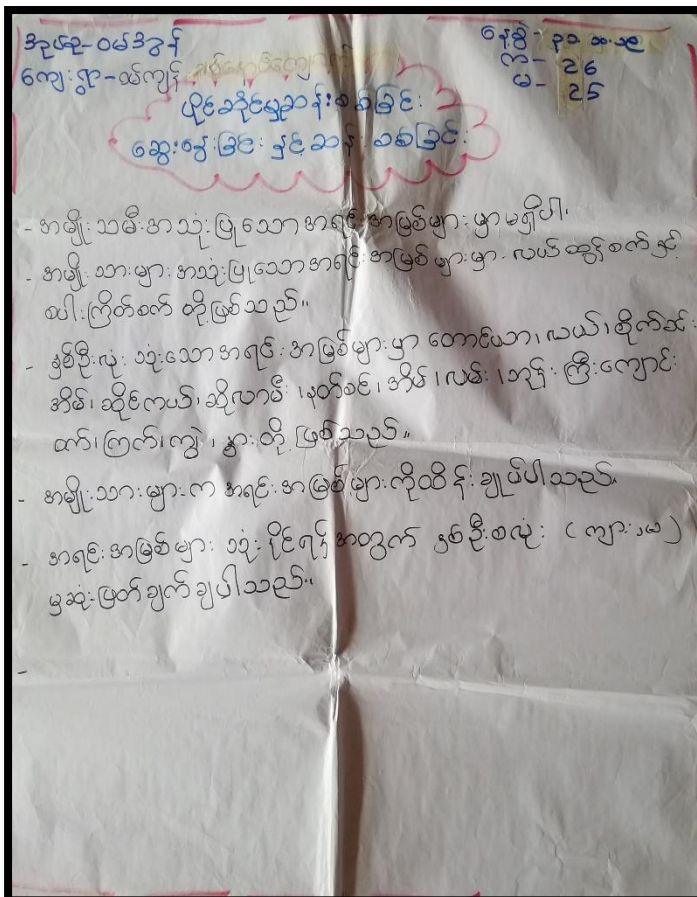 အုပ်စု-ဝမ်အွန်
နေ့စွဲ-
ကျေးရွာ-ယ်ကျန်
ကျ- 26
မ- 25
ပိုင်ဆိုင်မှုဆန်းစစ်ခြင်း
ဆွေးနွေးခြင်း နှင့် ဆန်းစစ်ခြင်း
- အမျိုးသမီးအသုံးပြုသောအရင်းအမြစ်များမှာမရှိပါ၊
- အမျိုးသားများအသုံးပြုသောအရင်းအမြစ်များမှာ လယ်ထွန်စက်နှင့်
စပါးကြိတ်စက် တို့ဖြစ်သည်။
- နှစ်ဦးလုံး သုံးသောအရင်းအမြစ်များမှာ တောင်ယာ၊လယ်၊စိုက်ခင်း
အိမ်၊ ဆိုင်ကယ်၊ ဆိုလာမီး၊နတ်စင်၊အိမ်၊လမ်း၊ဘုန်းကြီးကျောင်း
ဝက်၊ကြက်၊ကျွဲ၊နွားတို့ဖြစ်သည်။
- အမျိုးသားများက အရင်းအမြစ်များကိုထိန်းချုပ်ပါသည်။
- အရင်းအမြစ်များ သုံးပိုင်ရန်အတွက် နှစ်ဦးစလုံး (ကျား,မ)
မှဆုံးဖြတ်ချက်ချပါသည်။
-